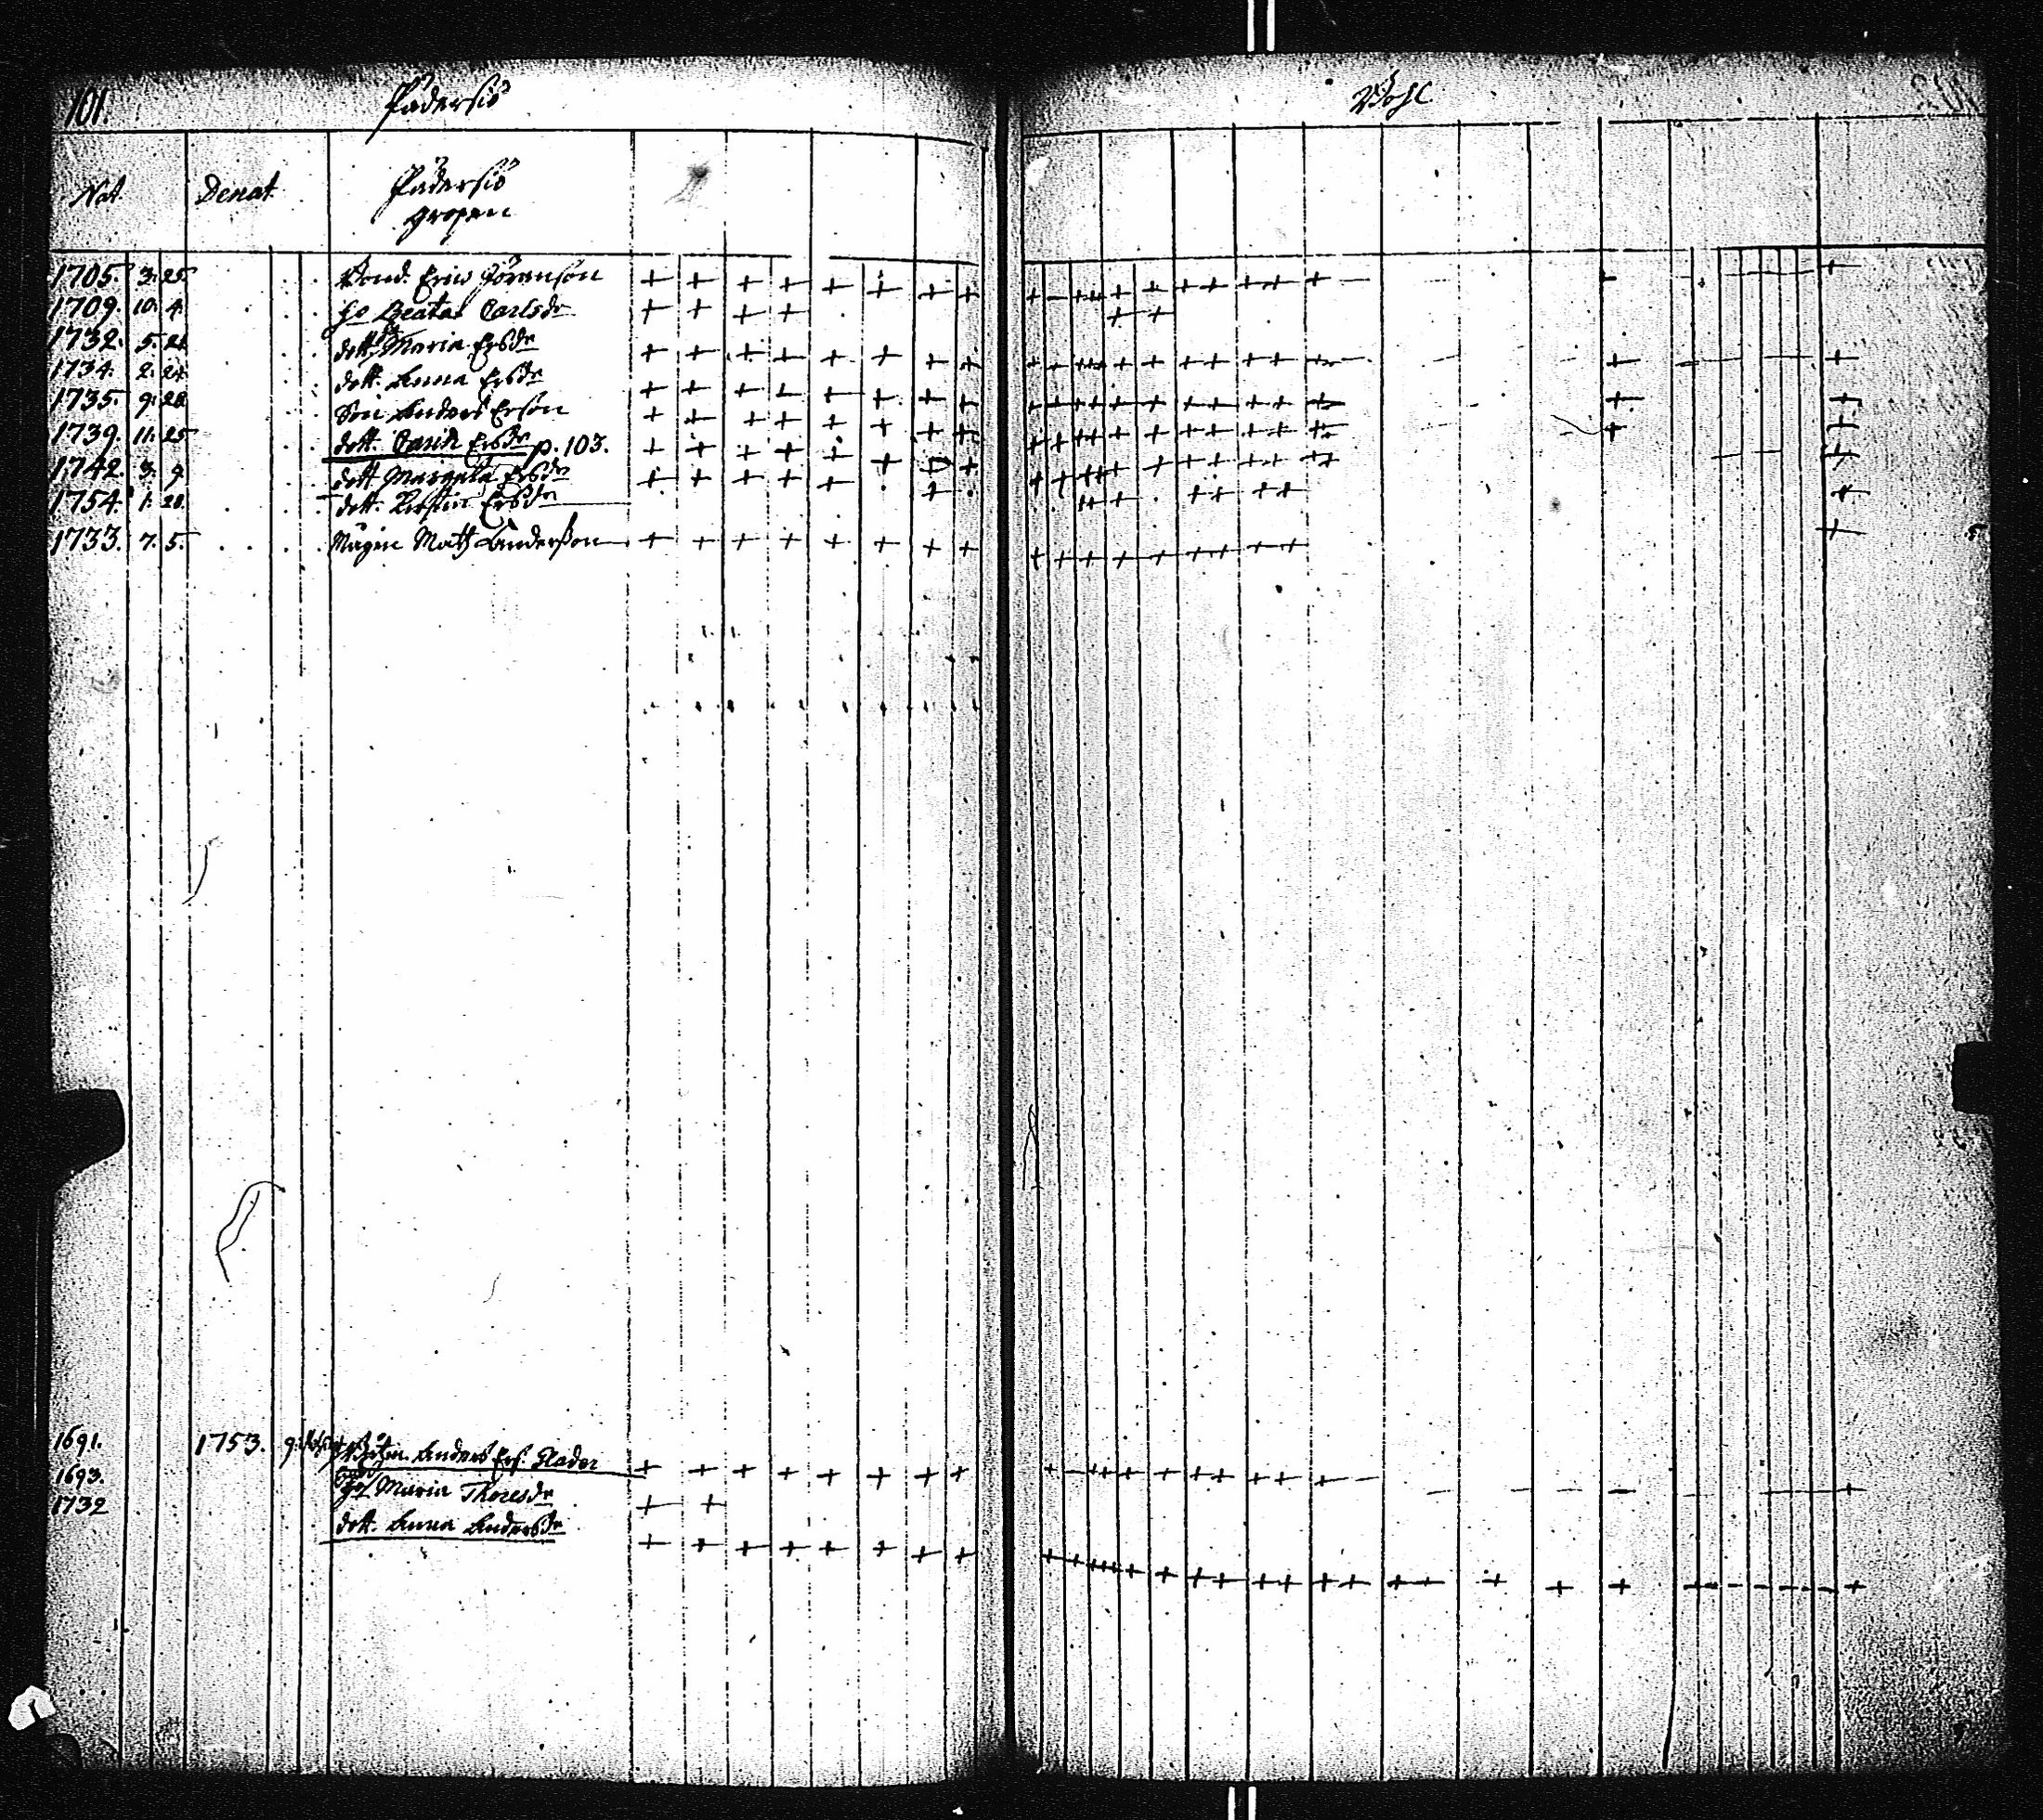 101. Pädersiö
Wohl 102
Nat. Denat. Pädersiö
gropen
1705. 3. 25. Bond. Eric Jöransson
1709. 10. 4. h. Beata Carlsdr
1732. 5. 21 dott. Maria Ersdr
1734. 2. 24 dott. Anna Ersdr
1735. 9. 28 Son Anders Erson
1739. 11. 25 dott. Carin Ersdr p. 103.
1742 3. 9 dott Margeta Ersdr
1754. 1. 28. dott. Kerstin Ersdr
1733. 7. 5. Mågen Mats Andersson
1691. 1753. Anders Ers. Glader
1693. Maria Thoresdr
1732 dott. Anna Andersdr